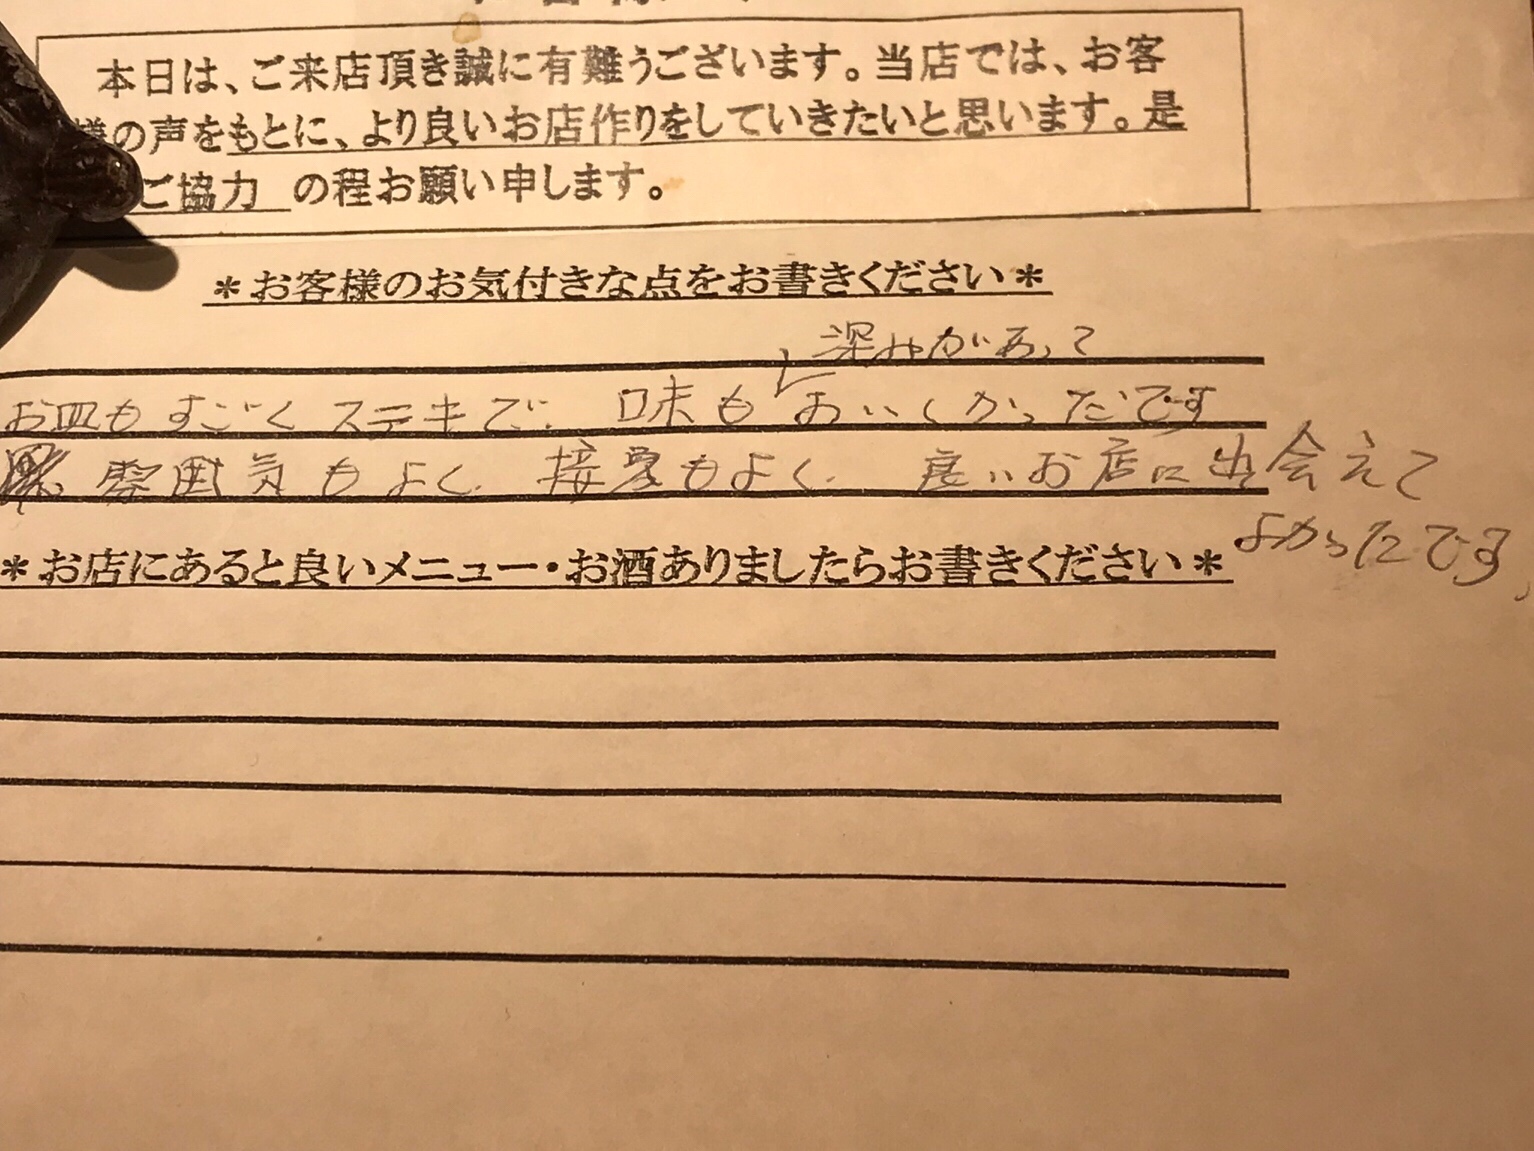 本日は、ご来店頂き誠に有難うございます。当店では、お客
様の声をもとに、より良いお店作りをしていきたいと思います。是
ご協力 の程お願い申します。
＊お客様のお気付きな点をお書きください＊
深みがあって
お皿もすごくステキで、味もおいしかったです
雰囲気もよく、接客もよく、良いお店に出会えて
よかったです、
＊お店にあると良いメニュー・お酒ありましたらお書きください＊